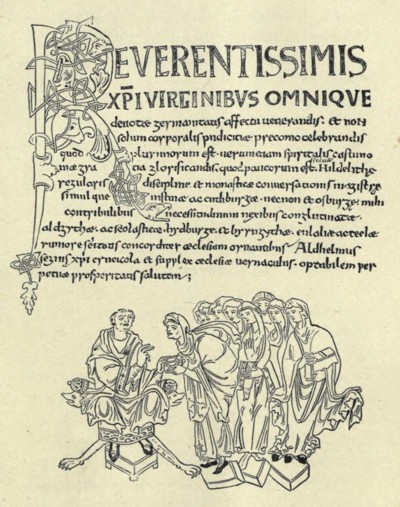 REVERENTISSIMIS
XPI VIRGINIBVS OMNIQVE
deuotae germanitatis affectu uenerandis · et non
solum corporalis pudicitiae preconio celebrandis
quod plurimorum est · uerum etiam spiritalis castimo
niae gratia glorificandis quod paucorum est · Hildelithae
regularis disciplinae et monasticae conuersationis magistrae
simul que iustinae ac cuthburge · necnon et osburge · mihi
contribulibus necessitudinum nexibus conglutinatae
aldgythae · ac scolasticae · hydburge · et byrngythae · eulaliae ac teclae
rumore sanctitatis concorditer aeclesiam ornantibus Aldhelmus
segnis xpi crucicola et supplex aeclesiae uernaculus · optabilem per
petuae prosperitatis salutem ;